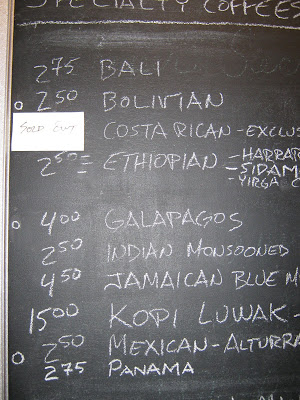 SPECIALTY COFFEES
2.75 BALI
o 2.50 BOLIVIAN
SOLD OUT COSTA RICAN - EXCLUS
2.50 = ETHIOPIAN = HARRAR
- SIDAM
- YIRGA C
o 4.00 GALAPAGOS
2.50 INDIAN MONSOONED
4.50 JAMAICAN BLUE M
15.00 KOPI LUWAK -
o 2.50 MEXICAN - ALTURRA
2.75 PANAMA